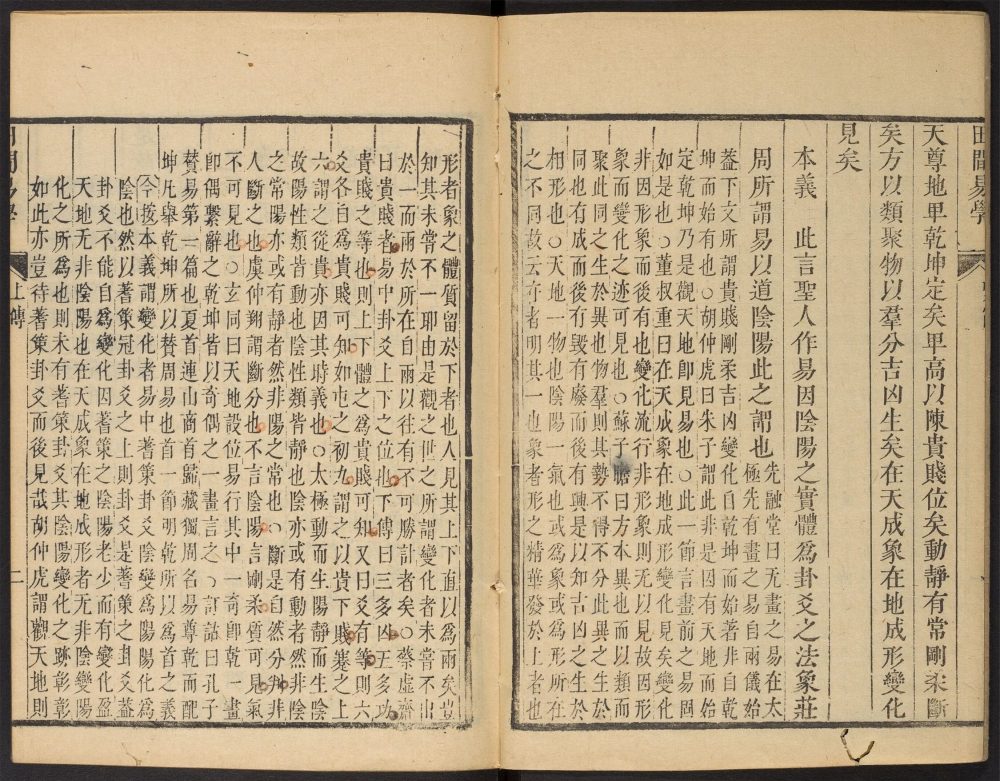 田間易學
天尊地卑乾坤定矣卑高以陳貴賤位矣動靜有常剛柔斷
矣方以類聚物以羣分吉凶生矣在天成象在地成形變化
見矣
本義　此言聖人作易因陰陽之實體爲卦爻之法象莊
周所謂易以道陰陽此之謂也
先融堂曰无畫之易在太
極先有畫之易自兩儀始
蓋下文所謂貴賤剛柔吉凶變化自乾坤而始著非自乾
坤而始有也○胡仲虎曰朱子謂此非是因有天地而始
定乾坤乃是觀天地卽見易也○此一節言畫前之易固
如是也○董叔重曰在天成象在地成形變化見矣變化
非因形象而後有也變化流行非形象則无以見故因形
象而變化之迹可見也○蘇子瞻曰方本異也而以類而
聚此同之生於異也物羣則其勢不得不分此異之生於
同也有成而後有毁有廢而後有興是以知吉凶之生於
相形也天地一物也陰陽一氣也或爲象或爲形所在
之不同故云在者明其一也象者形之精華發於上者也
形者象之體質留於下者也人見其上下直以爲兩矣豈
知其未嘗不一耶由是觀之世之所謂變化者未嘗不出
於一而兩於所在自兩以往有不可勝計者矣○蔡虛齋
曰貴賤者易中卦爻上下之位也下傳曰三多凶五多功
貴賤之等也則上下體之爲貴賤可知又曰爻有等則六
爻各自爲貴賤可知如屯之初九謂之以貴下賤蹇之上
六謂之從貴亦因其時義也○太極動而生陽靜而生陰
故陽性類皆動也陰性類皆靜也陰亦或有動者然非陰
之常陽亦或有靜者然非陽之常也○斷是自然分判非
人斷之也○虞仲翔謂斷分也不言陰陽言剛柔質可見氣
不可見也○玄同曰天地設位易行其中一奇卽乾一畫
卽偶繫辭之乾坤皆以奇偶之一畫言之○訂詁曰孔子
贊易第一篇也夏首連山商首歸藏獨周名易尊乾而配
坤凡舉乾坤所以贊周易也首一節明乾所以爲首之義
今按本義謂變化者易中蓍策卦爻陰變爲陽陽化爲
陰也然以蓍策冠卦爻之上則卦爻是蓍策之卦爻蓋
卦爻不能自爲變化因蓍策陰陽老少而有變化盈
天地无非陰陽也在天成象在地成形者无非陰變陽
化之所爲也則未有蓍策卦爻其陰陽變化之跡彰彰
如此亦豈待蓍策卦爻而後見哉胡仲虎謂觀天地則
上傳
二